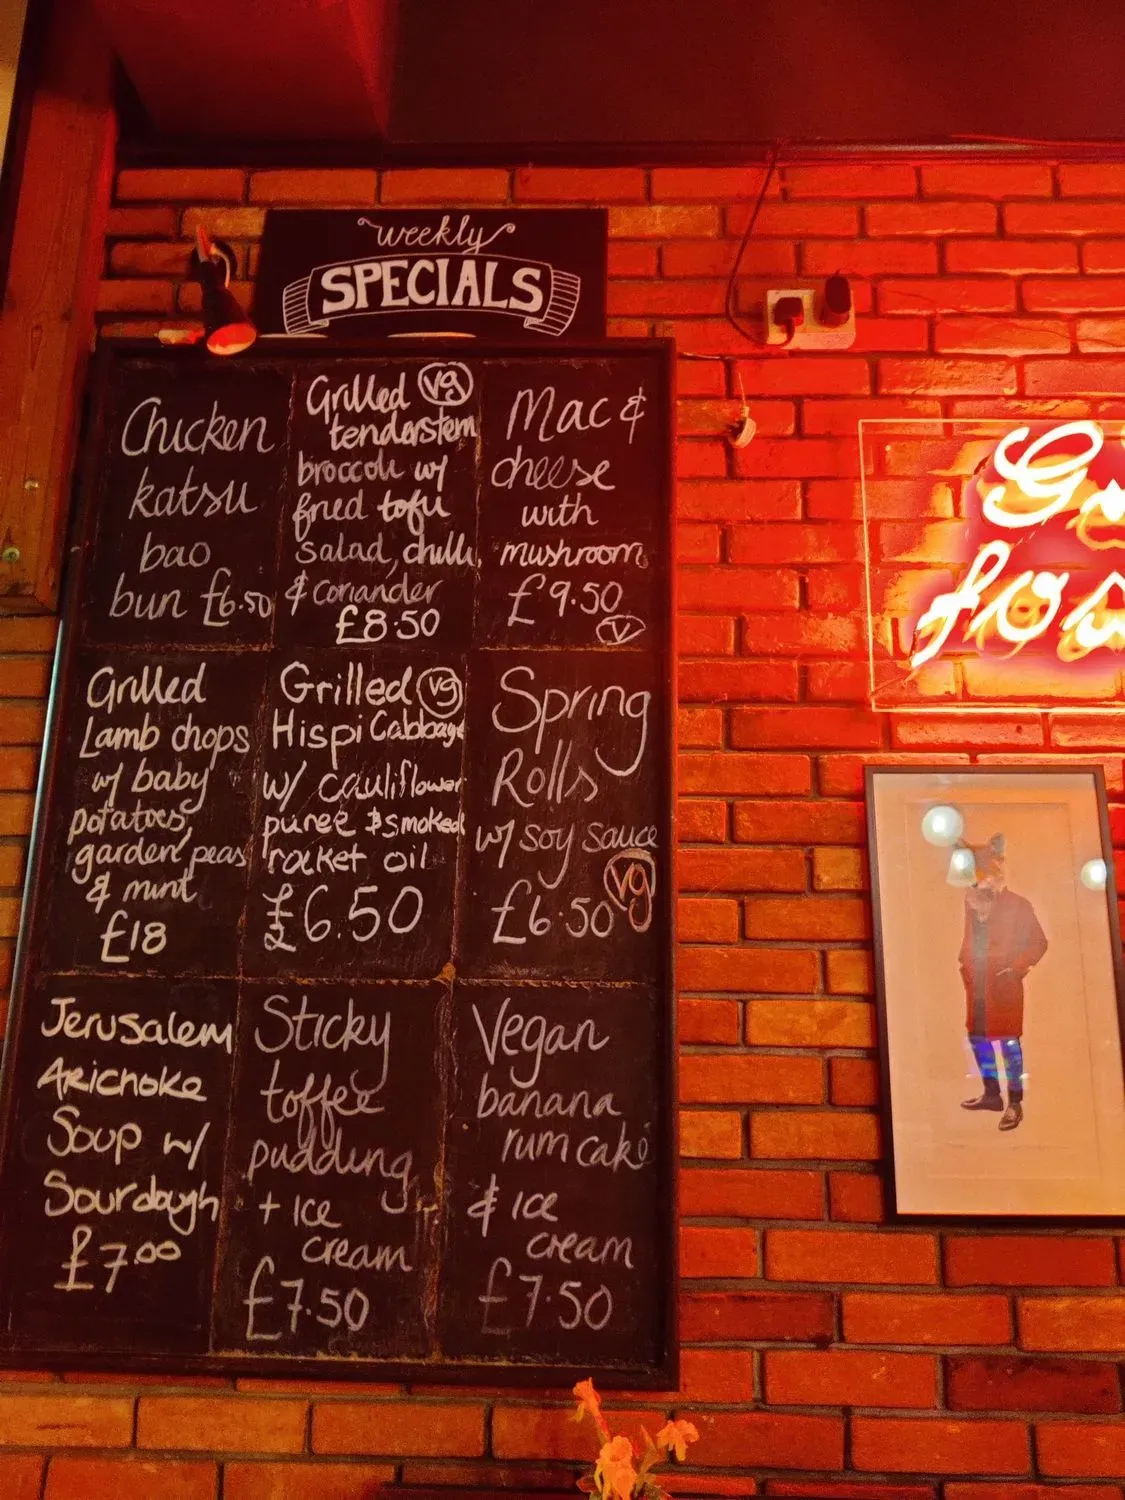 weekly
SPECIALS
Chicken
katsu
bao
bun £6.50
Grilled vg
tenderstem
broccoli w/
fried tofu
salad, chilli,
& coriander
£8.50
Mac &
cheese
with
mushroom
£9.50
v
Grilled
Lamb chops
w/ baby
potatoes,
garden peas
& mint
£18
Grilled vg
Hispi Cabbage
w/ cauliflower
puree & smoked
rocket oil
£6.50
Spring
Rolls
w/ soy sauce
£6.50 vg
Jerusalem
Arichoke
Soup w/
Sourdough
£7.00
Sticky
toffee
pudding
+ ice
cream
£7.50
Vegan
banana
rum cake
& ice
cream
£7.50